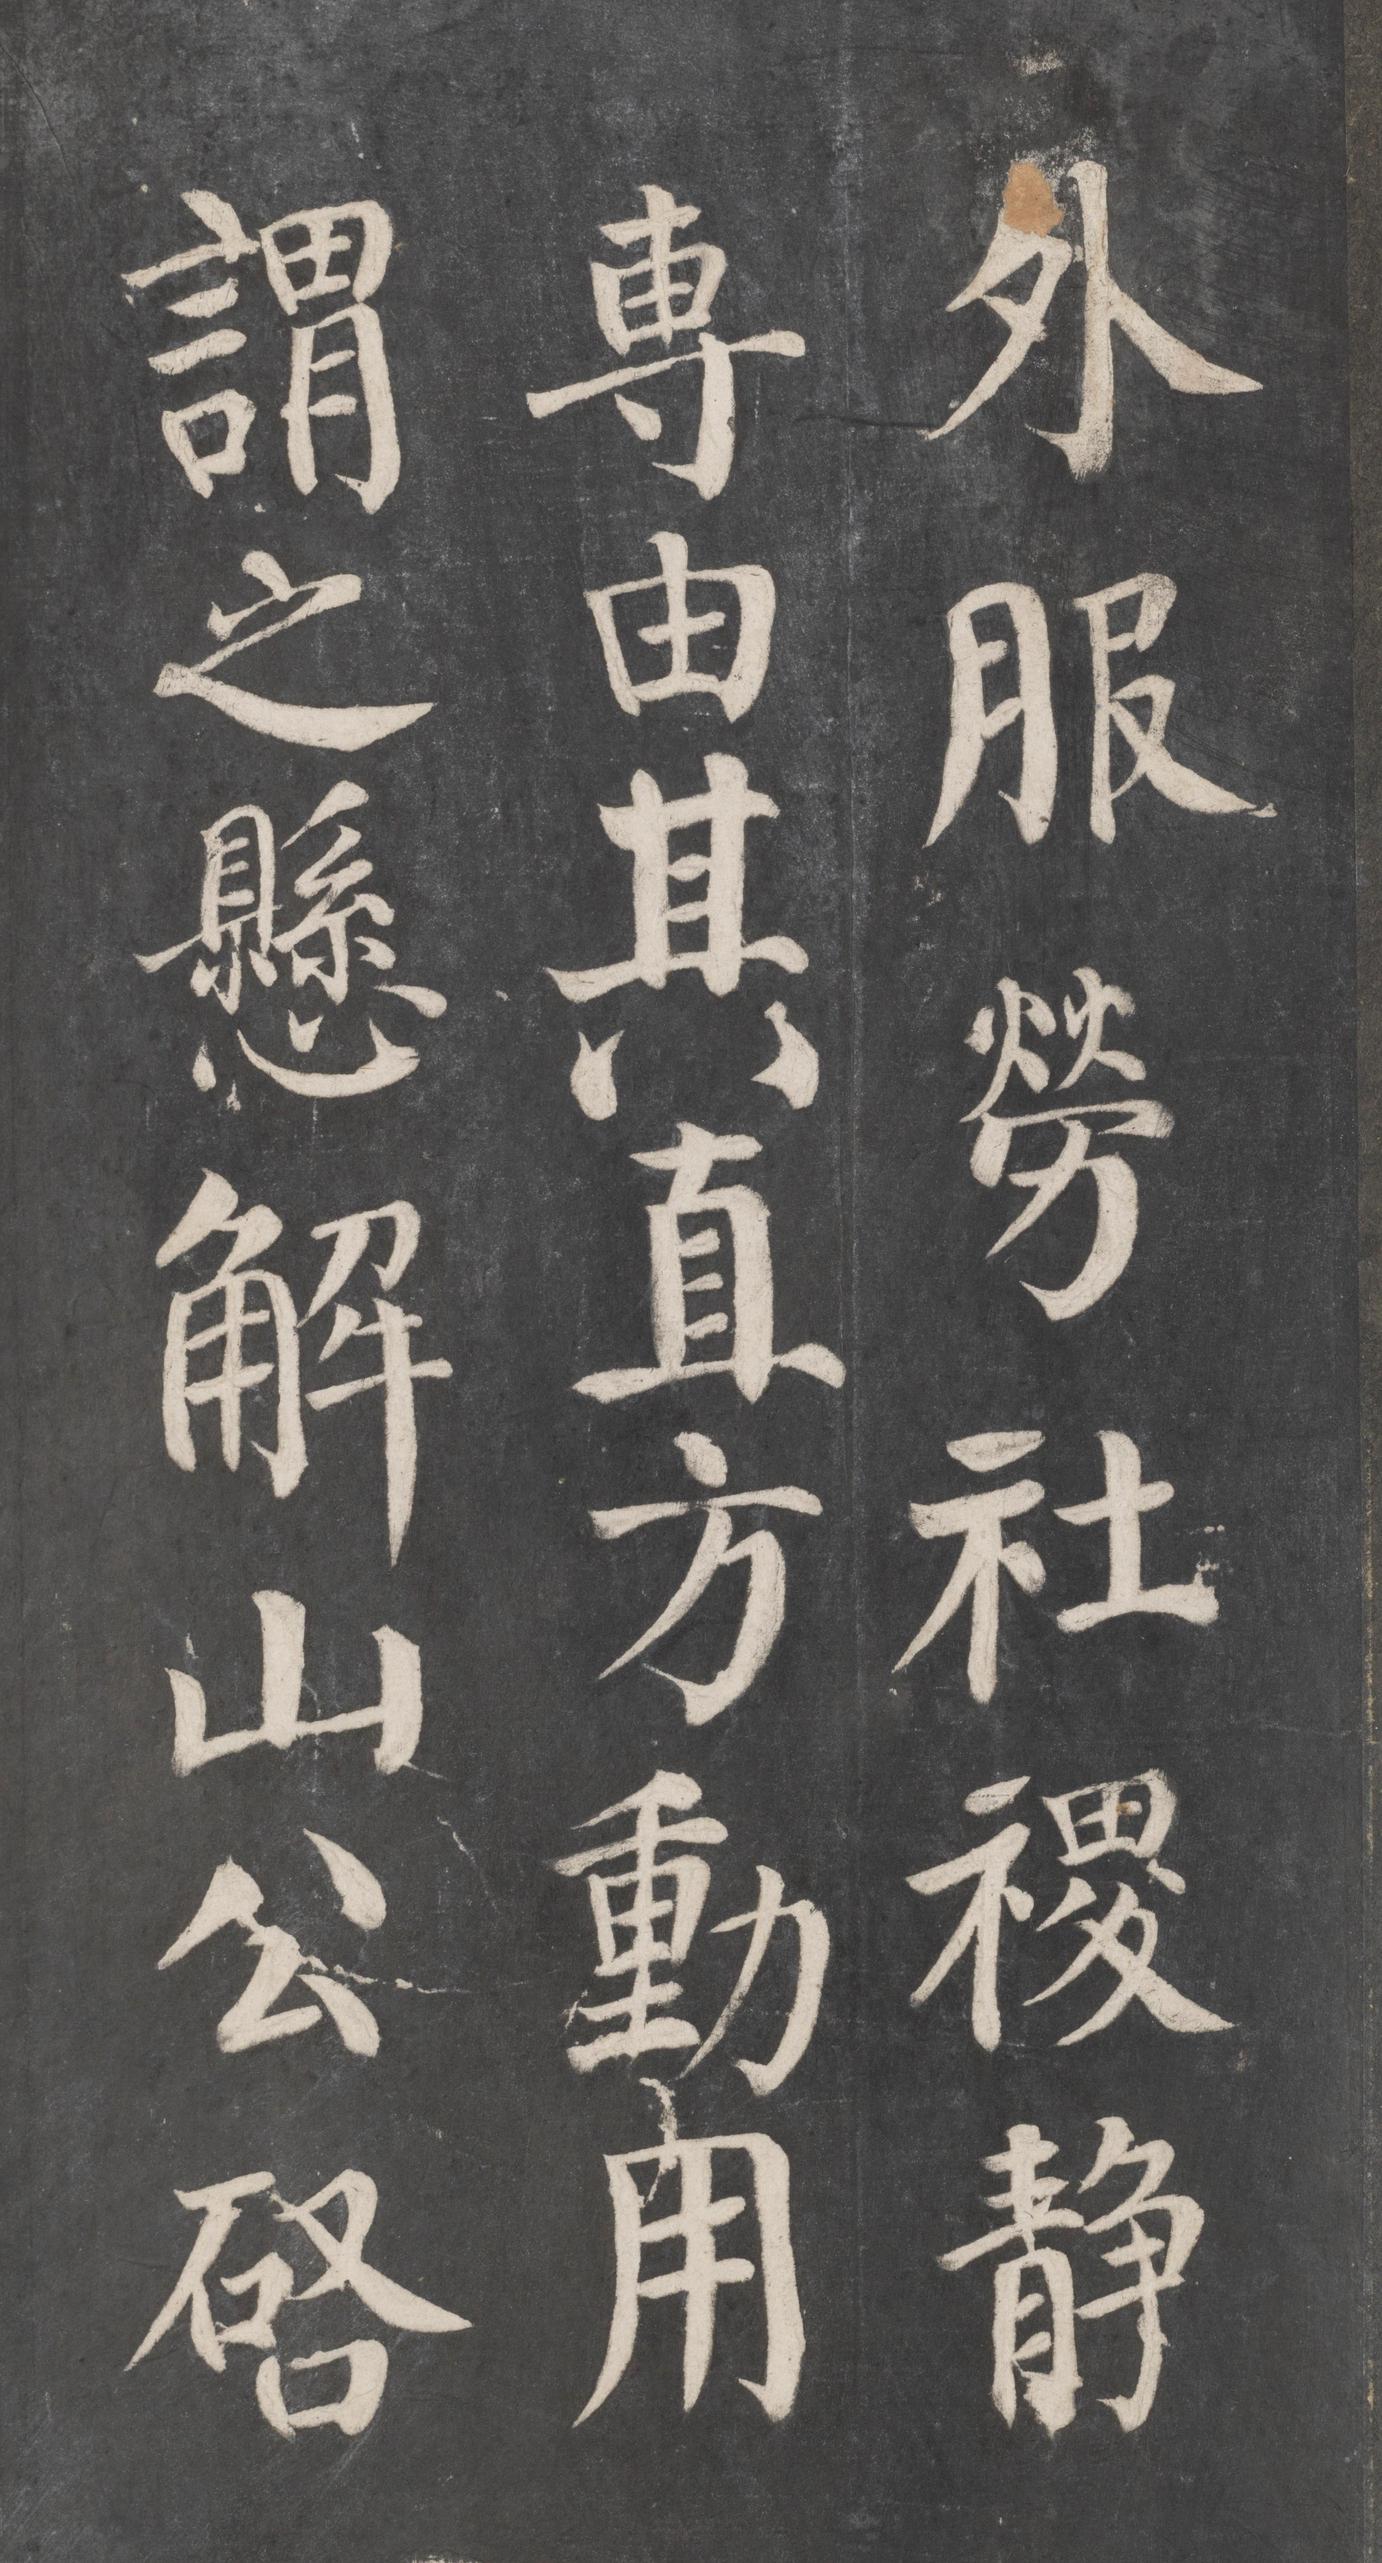 外服勞社稷静
專由其直方動用
謂之懸解山公啓